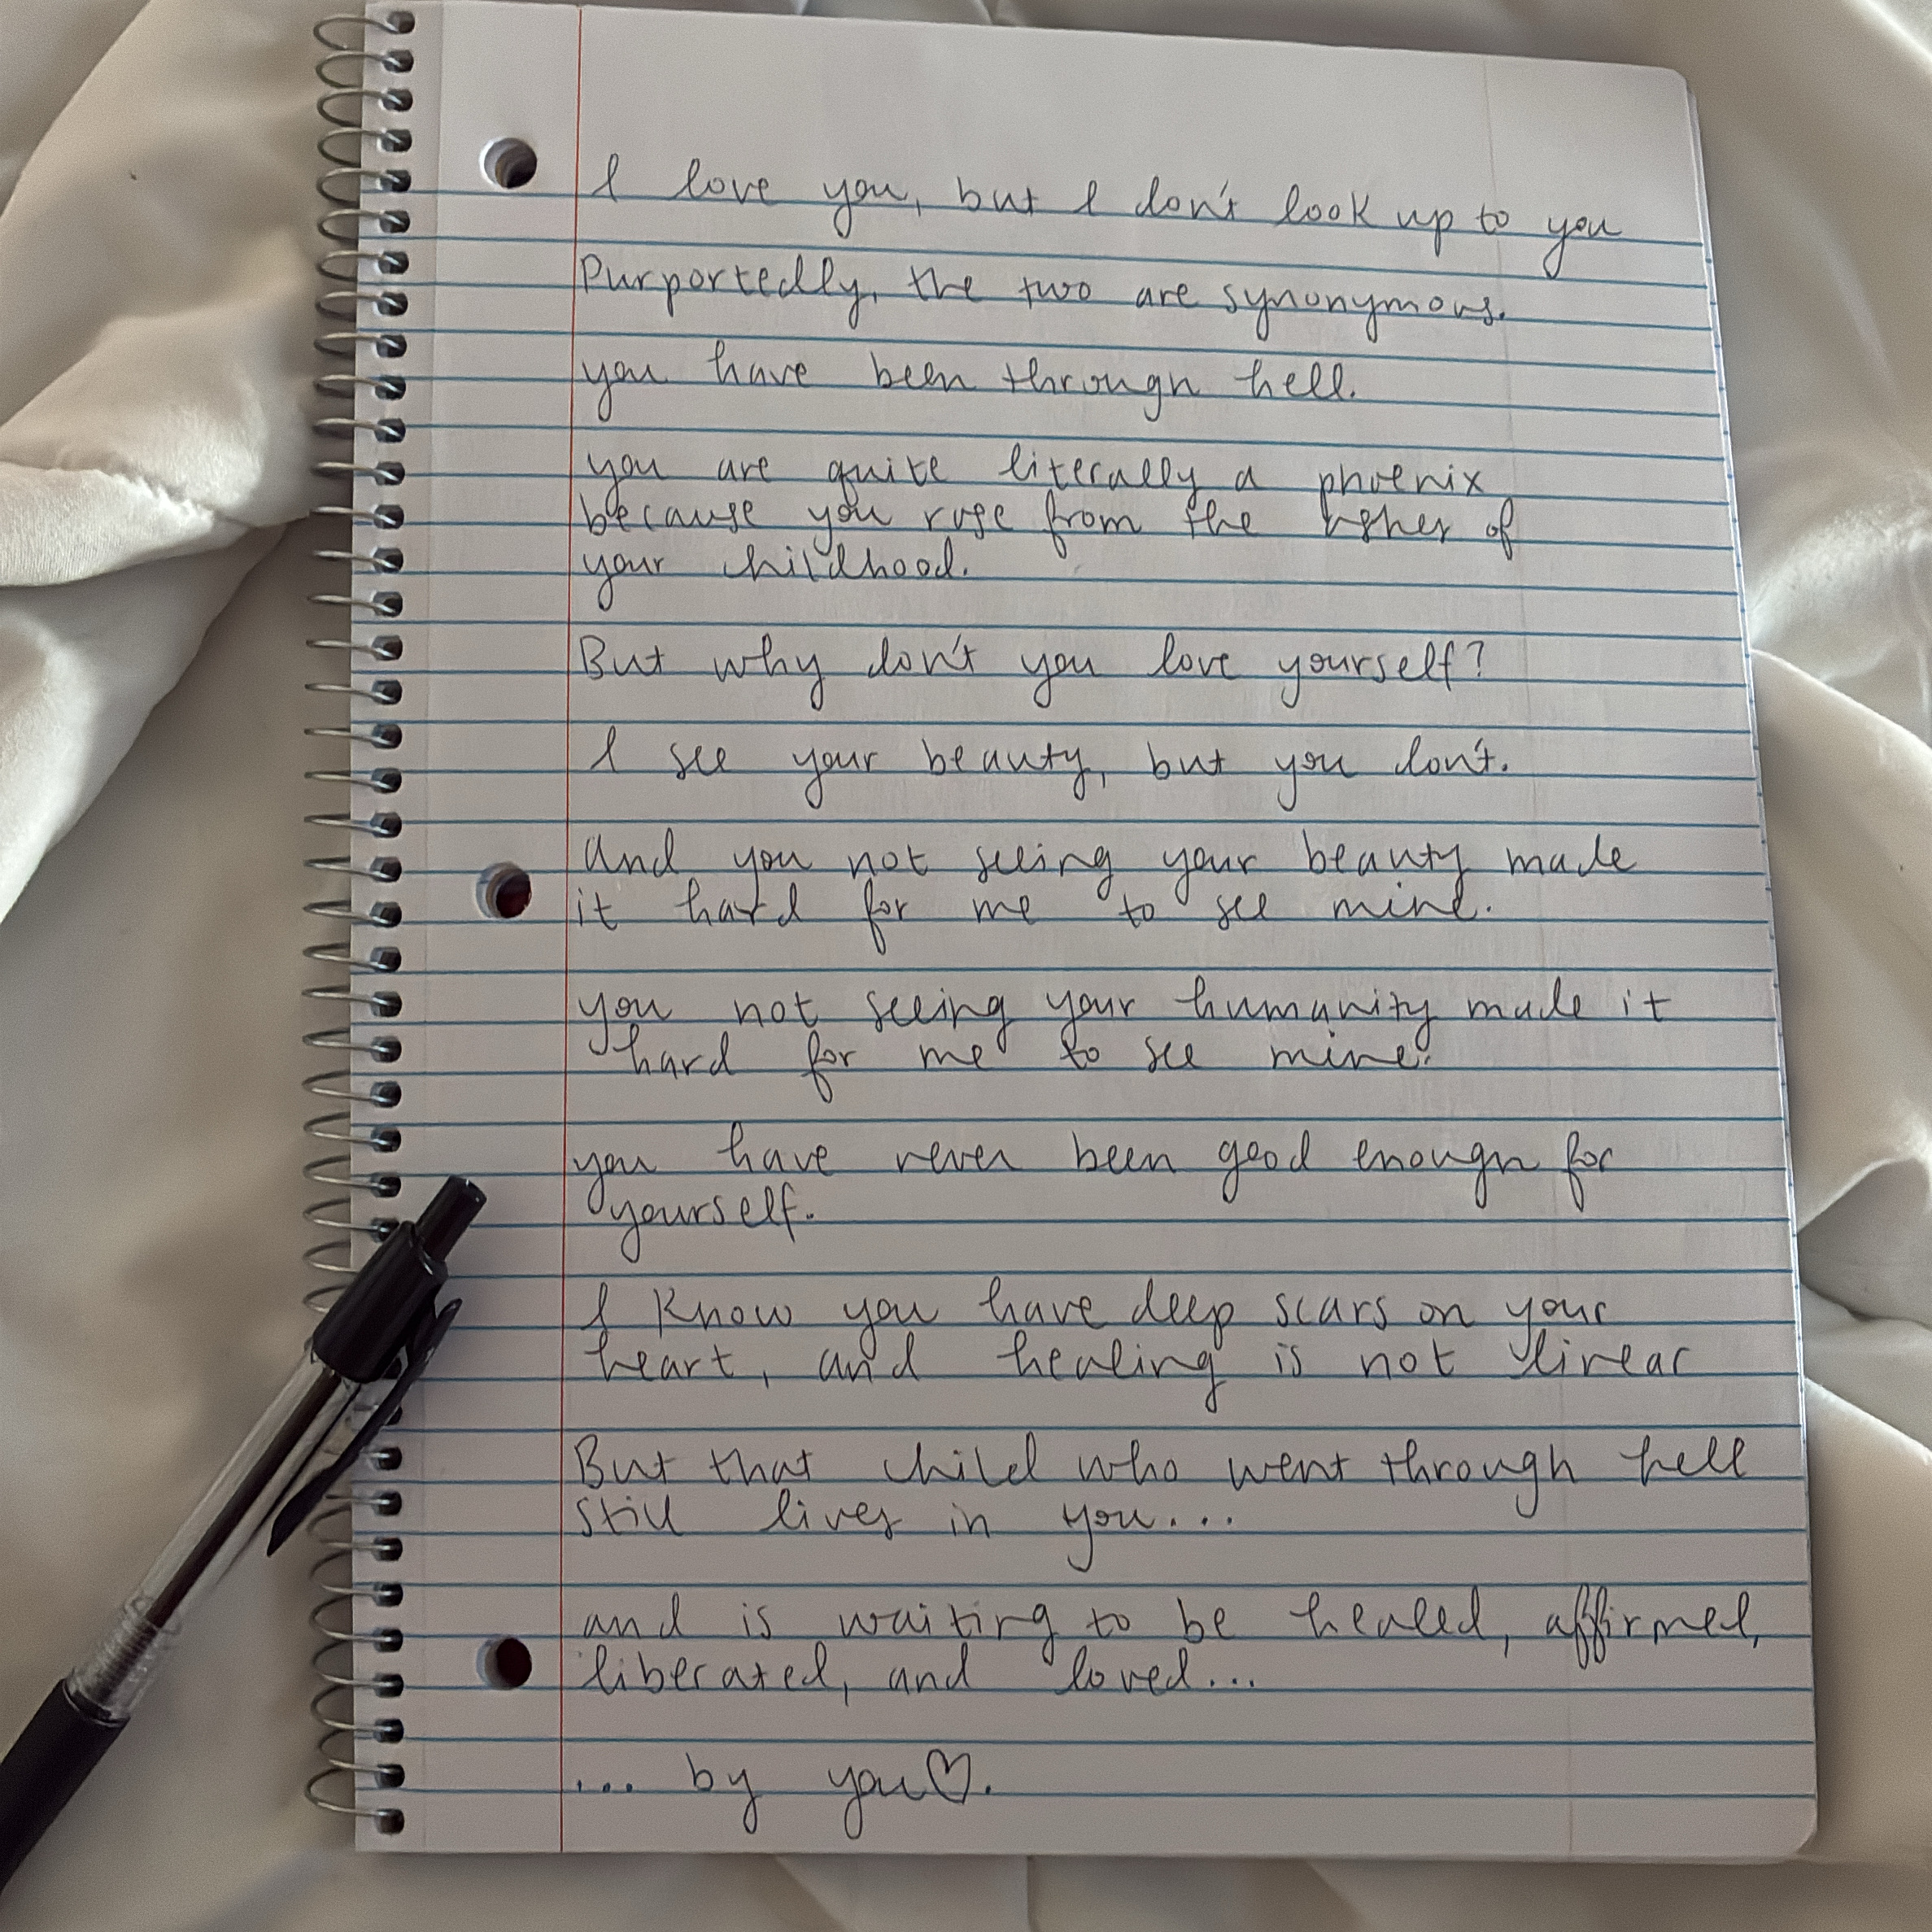 I love you, but I don't look up to you
Purportedly, the two are synonymous.
you have been through hell.
you are quite literally a phoenix
because you rose from the ashes of
your childhood.
But why don't you love yourself?
I see your beauty, but you don't.
and you not seeing your beauty made
it hard for me to see mine.
you not seeing your humanity made it
hard for me to see mine.
you have never been good enough for
yourself.
I know you have deep scars on your
heart, and healing is not linear
But that child who went through hell
still lives in you...
and is waiting to be healed, affirmed,
liberated, and loved...
... by you♡.